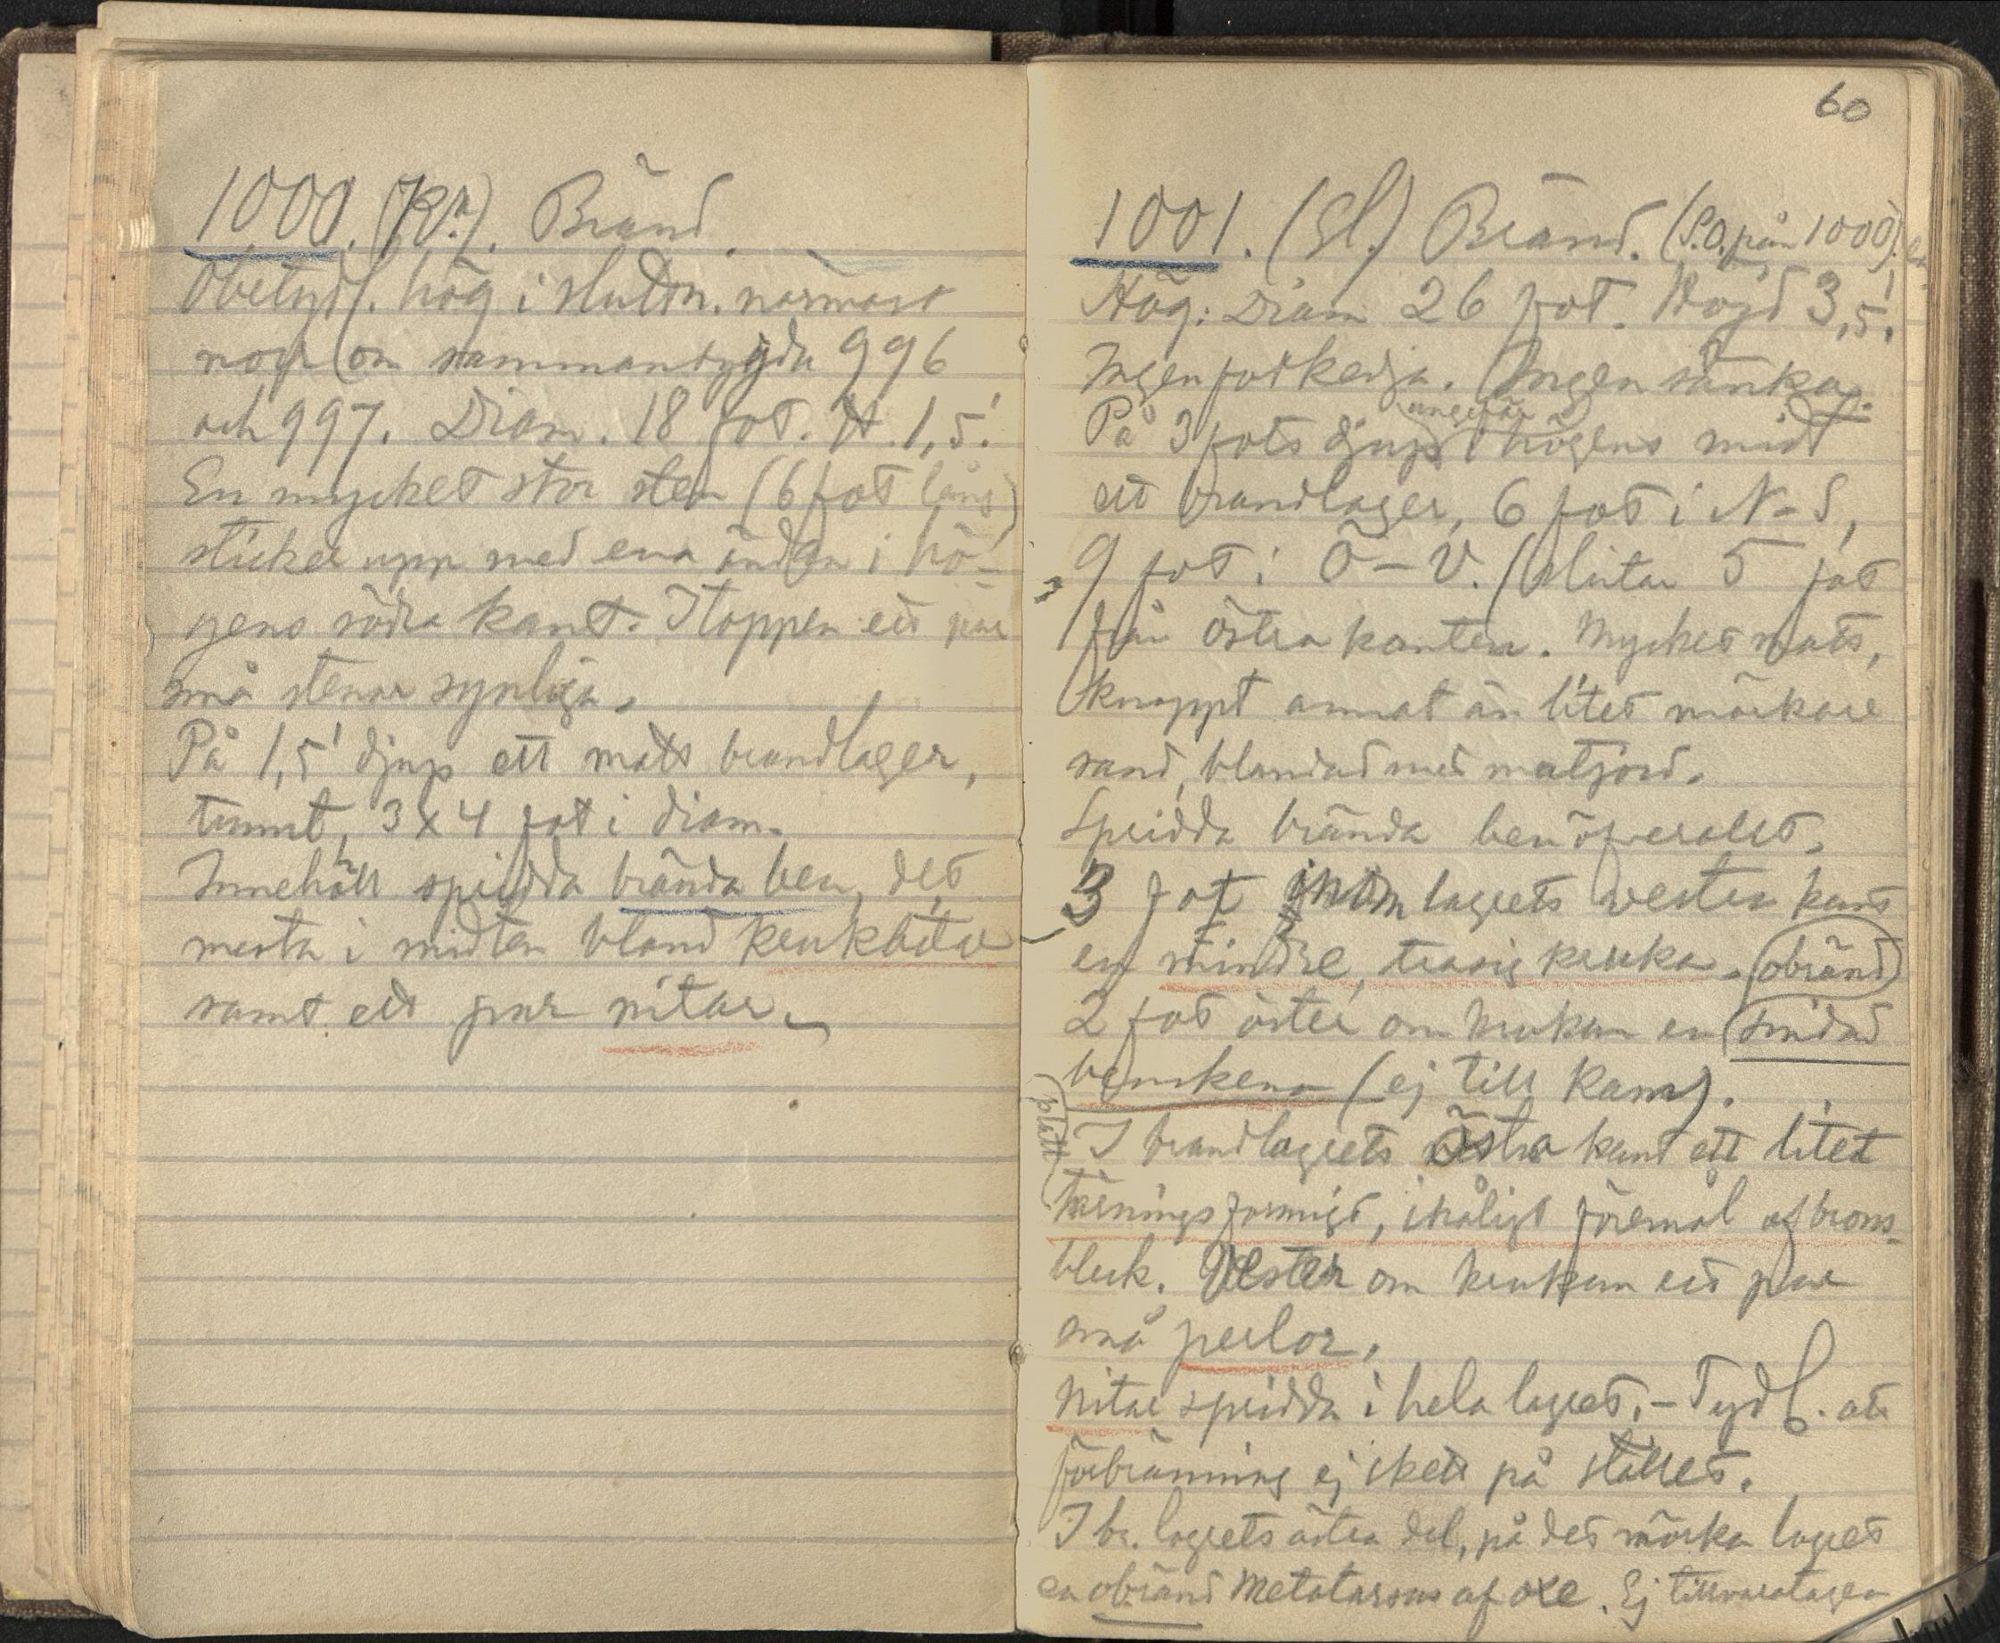 1000. (Kr.). Bränd.
Obetydl. hög i sluttn. närmast
norr om sammanbyggda 996
och 997. Diam. 18 fot. H. 1,5.'
En mycket stor sten (6 fot lång)
sticker upp med ena ändan i hö-
gens södra kant. I toppen ett par
små stenar synliga.
På 1,5' djup ett matt brandlager,
tunnt, 3x4 fot i diam.
Innehöll spridda brända ben, det
mesta i midten bland krukbitar
samt ett par nitar.
60
1001. (Gl.) Bränd. (S.O. från 1000).
Hög: Diam 26 fot. Höjd 3,5.'
Ingen fotkedja. Ingen sänka.
ungefär
På 3 fots djup i högens midt
ett brandlager, 6 fot i N-S,
9 fot i Ö-V. (slutar 5 fot
från östra kanten. Mycket matt,
knappt annat än litet mörkare
sand, blandad med matjord.
Spridda brända ben öfverallt.
3 fot inom lagrets vestra kant
en mindre, trasig kruka. obränd
2 fot öster om krukan en sirad
benskena (ej till kam).
platt
I brandlagrets östra kant ett litet
tärningsformigt, ihåligt föremål af brons-
bleck. Vester om krukan ett par
små perlor.
Nitar spridda i hela lagret. - Tydl. att
förbränning ej skett på stället.
I br. lagrets östra del, på det mörka lagret
en obränd Metatarsus af oxe. Ej tillvaratagen